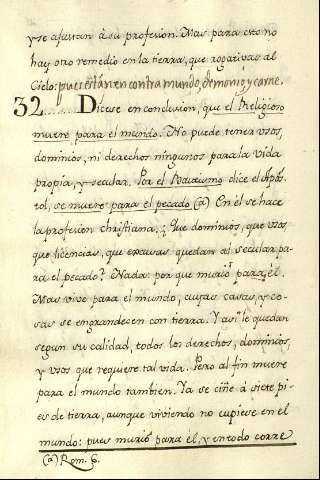 y se ajustan à su profesion. Mas para esto no
hay otro remedio en la tierra, que rogativas al
Cielo: pues están en contra mundo, demonio y carne.
32 Dicese en conclusion, que el Religioso
muere para el mundo. No puede tener usos,
dominios, ni derechos ningunos para la vida
propia, y secular. Por el Bautismo dice el Apos
tol, se muere para el pecado (a) En él se hace
la profesion christiana; ¿Que dominios, que usos
que licencias, que excusas quedan al secular pa
ra el pecado? Nada: por que murió para él.
Mas vive para el mundo, cuyas casas, y co-
sas se engrandecen con tierra. Y así le quedan
segun su calidad, todos los derechos, dominios,
y usos que requiere tal vida. Pero al fin muere
para el mundo tambien. Ya se ciñe á siete pi-
es de tierra, aunque viviendo no cupiese en el
mundo: pues murió para él, y en todo corre
(a) Rom. 6.